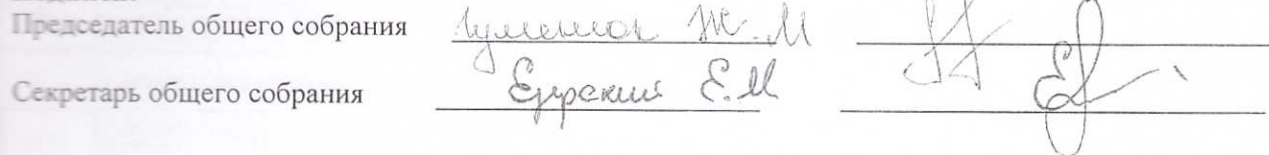 Председатель общего собрания Гуменюк Ж.М
Секретарь общего собрания Е.М